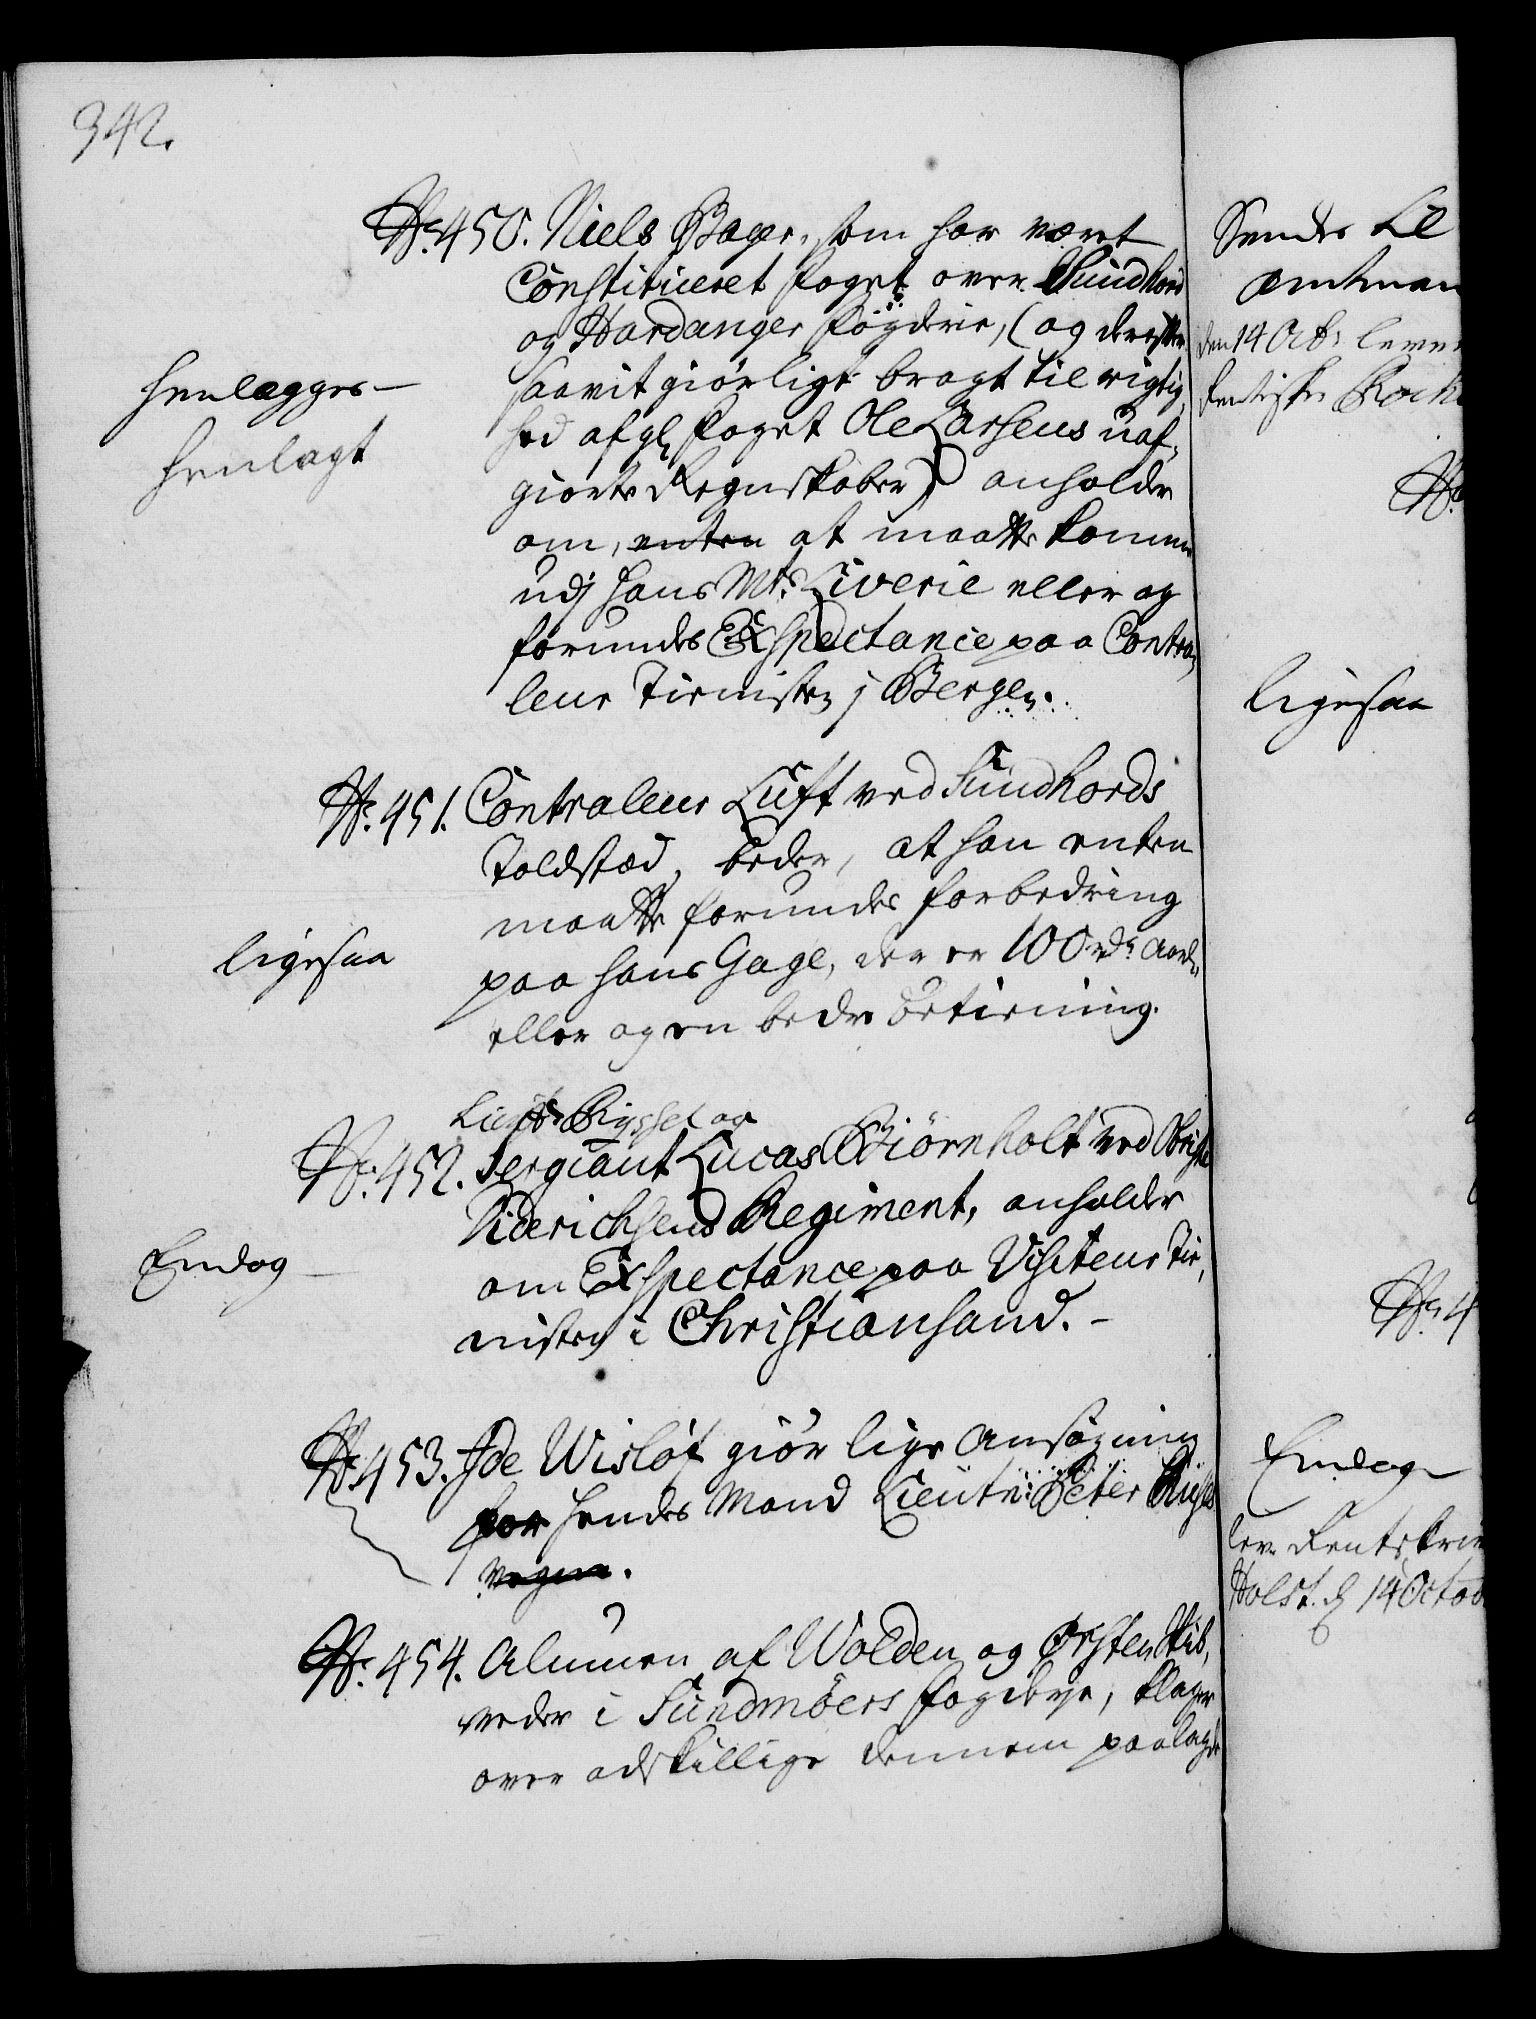 342.
No. 450. Niels Bager, som har været
Constitueret foget over Sundhord
og Hardanger fögderie, (og derefter
saavit giörligt bragt til rigtig,
hed afgl. foget Ole Larsens uaf,
giorte Regnskaber) anholder
om, enten at maatte komme
udj Hans Mts. Liverie eller og
forundes Exspectance paa Contra,
leur Tienisten j Bergen.
henlægges
henlagt
No. 451. Contraleur Luft ved Sundhords
Toldstæd, beder, at han enten
maatte forundes forbedring
paa hans Gage, der er 100 rdr. aarl.
eller og en bedre betiening.
ligesaa
Lieutn. Rysset og
No. 452. Sergiant Lucas Biörnholt ved Obriste
Diderichsens Regiment, anholder
om Exspectance paa Visiteur Tie,
nisten i Christiansand. -
Endog
No. 453. Ide Wislöf giör lige Ansögning
for hendes Mand Lieutn: Peter
vegne.
No. 454. Almuen af Wolden og Örsten Skib,
reder i Sundmöers fogderye, klager
over adskillige dennem paalagde
Sendes til
Amtman
den 14 Oct. lever
No.
ligesaa
No. 4
Endog
lev. Rentskriv
Holst. d. 14 Octob